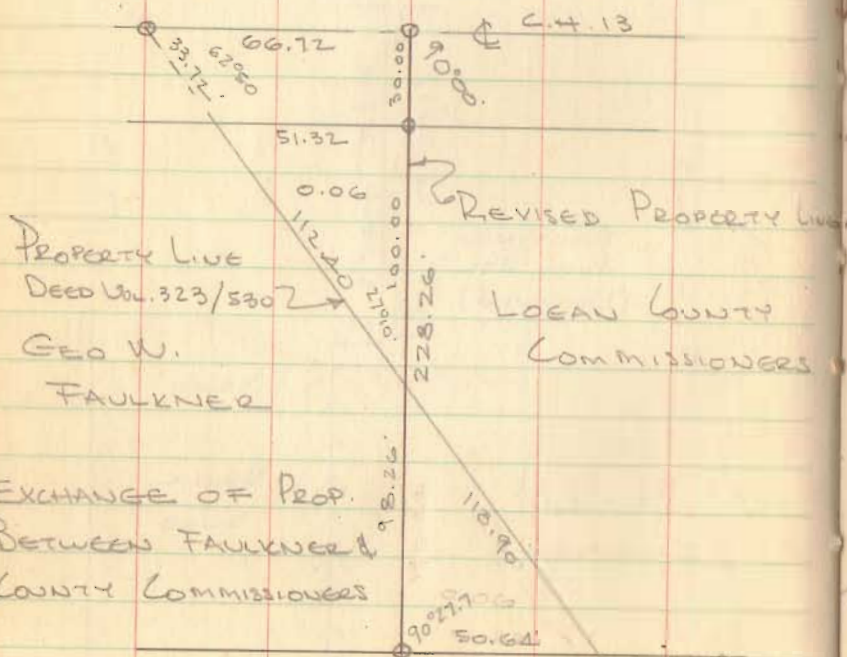 66.72
℄ C.H.13
33.72
62°50
30.00
90°00'
51.32
0.06
REVISED PROPERTY LINE
112.40
100.00
PROPERTY LINE
DEED VOL. 323/530
27°10'
228.26'
LOGAN COUNTY
COMMISSIONERS
GEO W.
FAULKNER
98.26'
EXCHANGE OF PROP.
BETWEEN FAULKNER &
COUNTY COMMISSIONERS
110.90
90°27.7
50.64